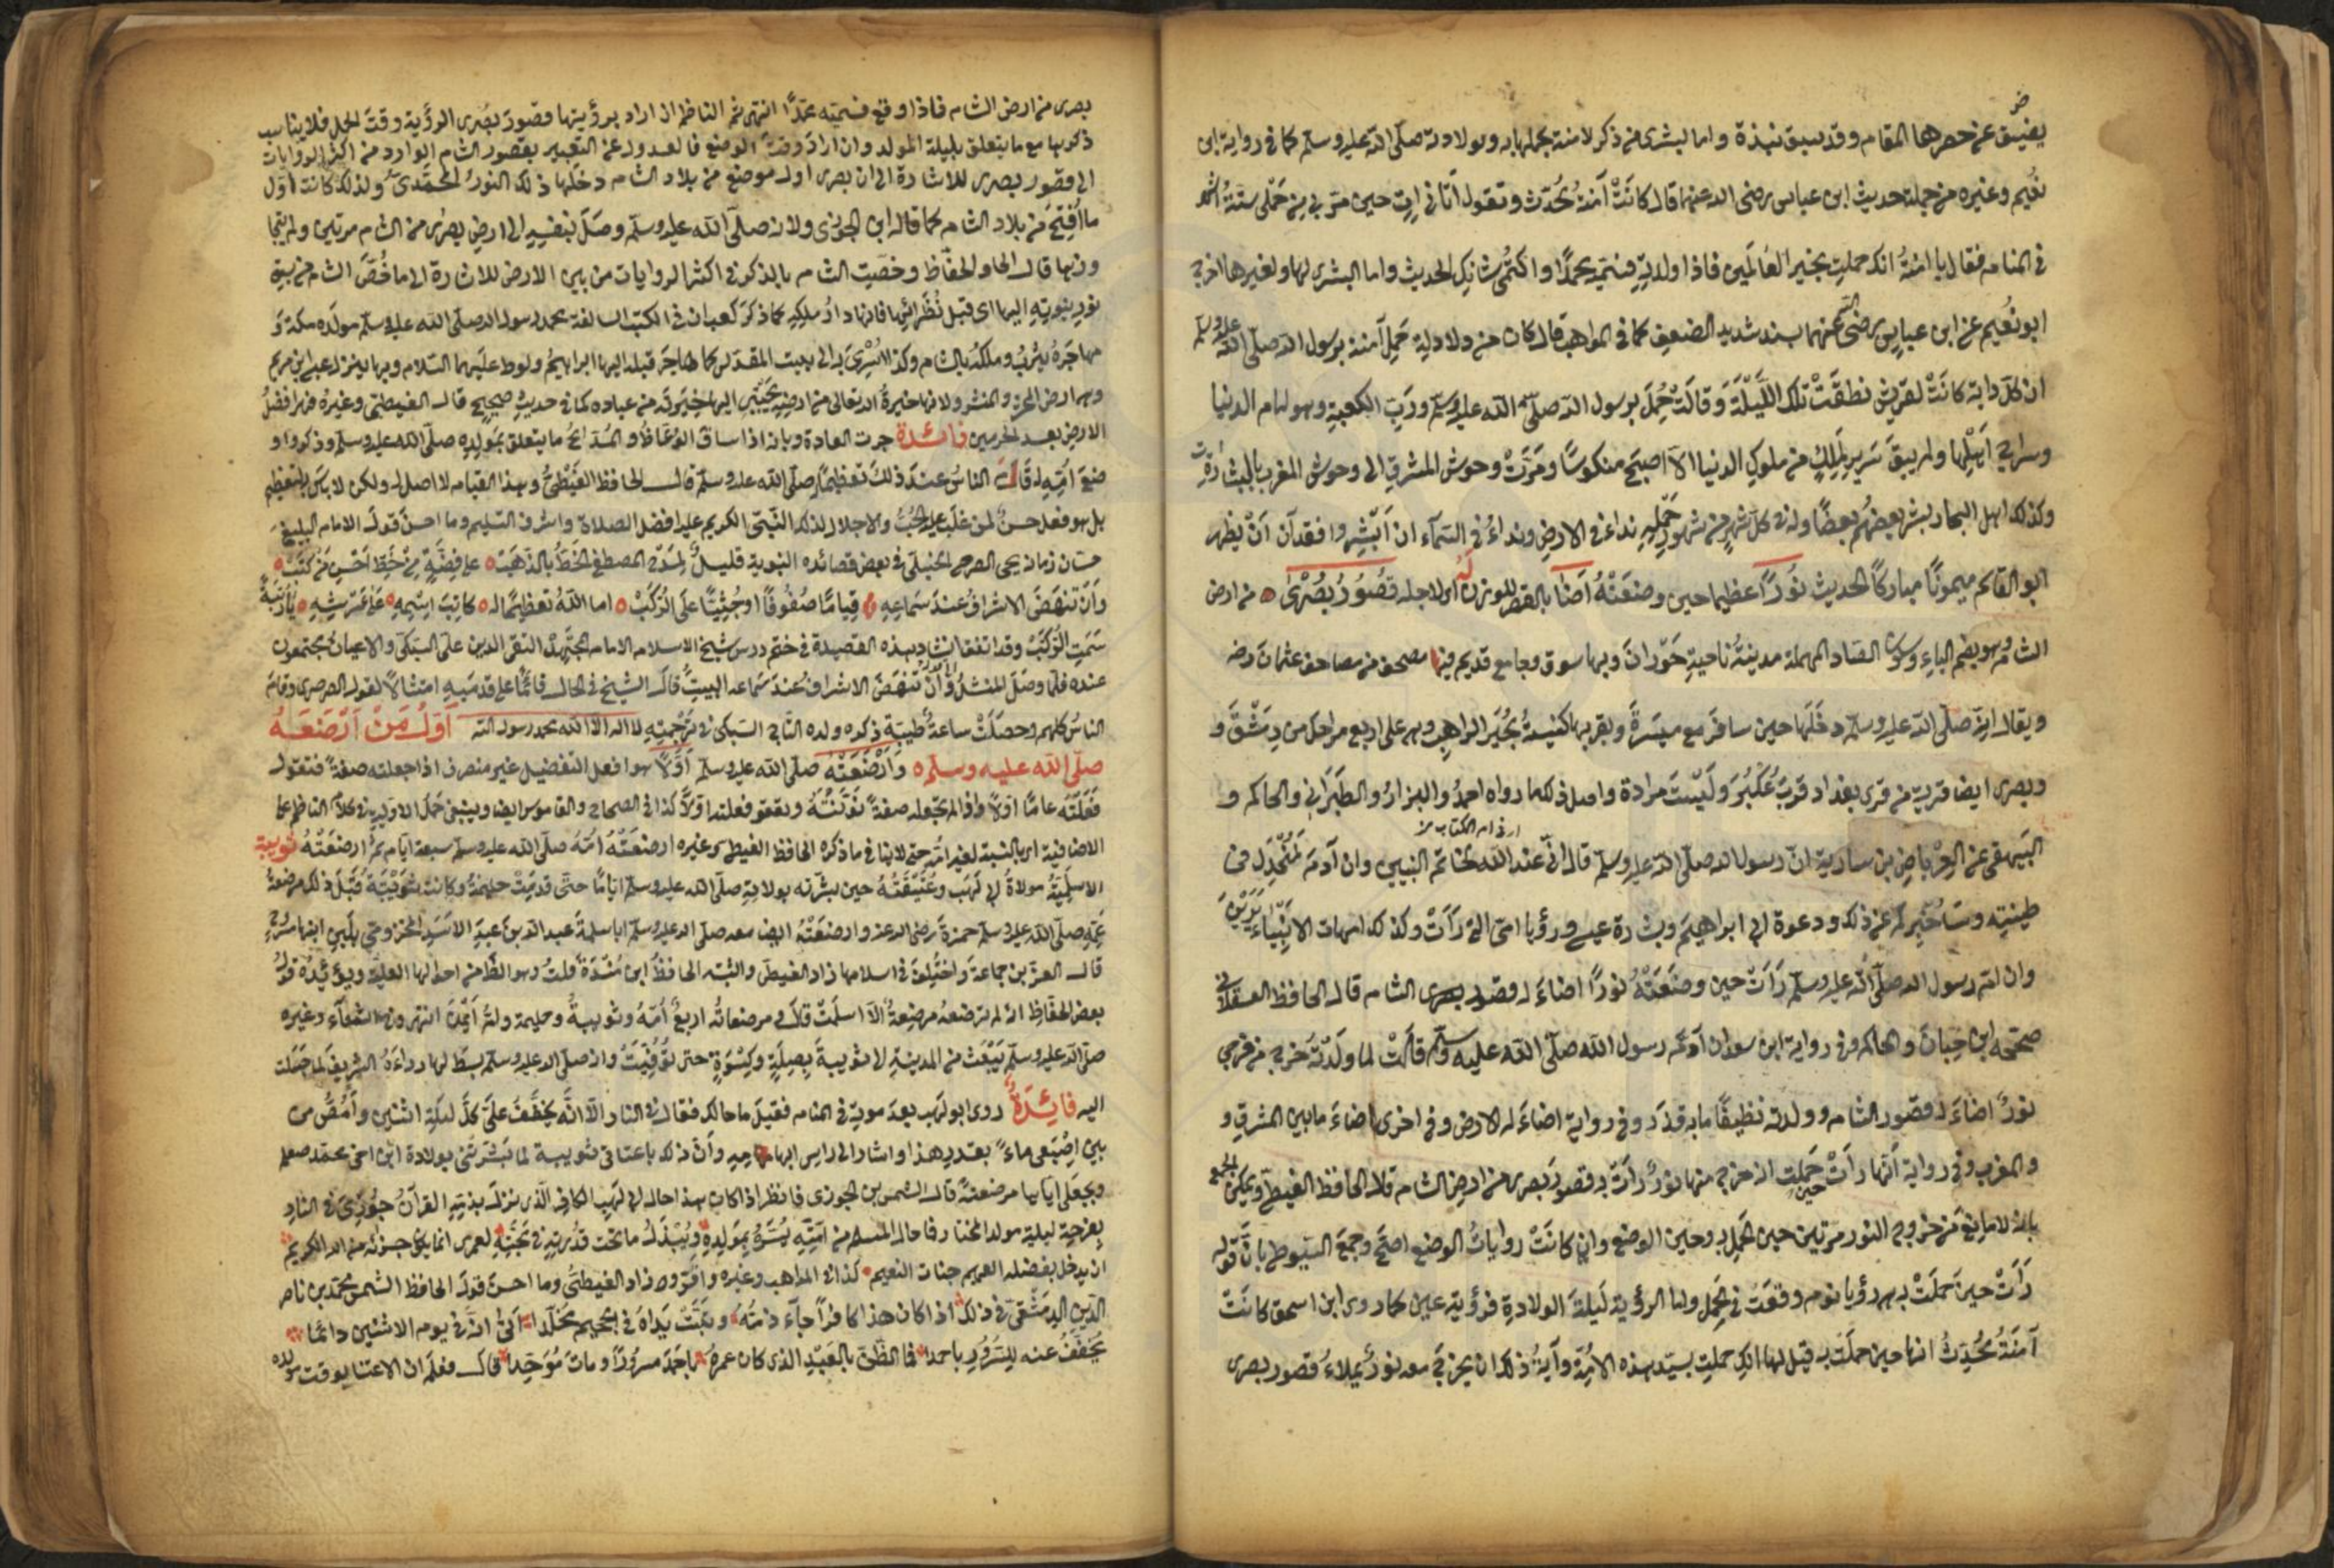 يضيق عن حصرها المقام وقد سبق نبذة واما بشرى من ذكر لامنة بحملها به وبولادته صلى الله عليه وسلم كما في رواية ابي
نُعيم وغيره من جملة حديث ابن عباس رضي الله عنهما قال كانَتْ آمنةُ تُحَدِّث وتقول أتاني اتٍ حين مرّ بي من حَمْلي ستةُ اشهر
في المنام فقال يا امنةُ انك حملتِ بخير العالَمين فاذا ولدتِيهِ فسَمِّيهِ محمدًا واكتُمي شانَكِ الحديث واما البشرى لها ولغيرها اخرج
ابو نُعيم عن ابن عباس رضي الله عنهما بسند شديد الضعف كما في المواهب قال كان من دلالةِ حَملِ آمنة برسول الله صلى الله عليه وسلم
ان كلّ دابة كانَتْ لقريش نطقَتْ تلكَ اللَّيْلَةَ وَقالَتْ حُمِلَ برسول الله صلى الله عليه وسلم وربِّ الكعبةِ وهو امام الدنيا
وسراج اَهْلِها ولم يبقَ سَرير لمَلِكٍ من ملوك الدنيا الا اصبحَ منكوسًا ومَرَّتْ وحوش المشرق الى وحوش المغرب بالبشارات
وكذلك اهل البحار يبشر بعضُهم بعضًا وله في كلّ شهرٍ من شهور حَمْلِهِ نداءٌ في الارضِ ونداءٌ في السّمآء ان اَبْشِروا فقد آن اَنْ يظهر
ابو القاسم ميمونًا مباركًا الحديث نُوراً عظيما حين وضعَتْهُ اَضَا بالقصر للوزن لَهُ اولاجله قصُورُ بُصْرَى من ارض
الشام وهو بضم الباءِ وسكون الصّاد المهملة مدينةُ ناحيةِ حَوْرانَ وبها سوق وجامع قديم فيها مصحف من مصاحف عثمانَ رضه
ويقال انه صلى الله عليه وسلم دخَلَها حين سافرَ مع ميسرةَ وبقربها كنيسةُ بُحَيْرَ الراهبِ وهي على اربع مراحل من دمَشْقَ و
وبصرى ايضا قرية من قرى بغداد قربَ عُكْبُرَ ولَيْسَتْ مرادة واصل ذلك ما رواه احمدُ والبزارُ والطبَرَانيّ والحاكم و
البَيهقي عن العِرْباض بن سارية انّ رسول الله صلى الله عليه وسلم قال انّي عند الله لخاتم النبيين وان آدمَ لَمُنْجَدِل في
طينتِه وسَأُخْبِركم عن ذلك دعوة ابي ابراهيمَ وبشارة عيسى ورؤيا امّي التي رَأَتْ وكذلك امهات الانبياء يَرَيْنَ
وان امّ رسول الله صلى الله عليه وسلم رَأَتْ حين وضعَتْهُ نورًا اضاءَ له قصور بصرى الشام قال الحافظ العسقلاني
صححه ابن حِبّانَ والحاكم وفي رواية ابن سعد ان آمنة ام رسول الله صلى الله عليه وسلم قالتْ لما ولَدْتُه خرج من فرجي
نورٌ اضاءَ له قصور الشام وولدته نظيفًا ما به قذَر وفي رواية اضاءَ له الارض وفي اخرى اضاءَ ما بين المشرق و
والمغرب وفي رواية أنّها رأَتْ حين حملت انه خرج منها نورٌ رأَتْ به قصورَ بصرى من ارض الشام قال الحافظ الغيطي ويمكن الجمع
بانه لا مانعَ من خروج النور مرتين حين الحَمل به وحين الوضع وان كانَتْ رواياتُ الوضع اصحّ وجمعَ السيوطي بانّ قوله
رَأَتْ حينَ حملَتْ به هي رؤيا نوم وقعَتْ في الحمل واما الرؤية لَيلةَ الولادةِ فرؤيةِ عين كما روى ابن اسحق كانَتْ
آمنَةُ تُحدِّثُ انها حين حملَتْ به قيل لها انكِ حملتِ بسيّد هذه الامّةِ وآيةُ ذلك ان يخرجَ معه نورٌ يملاءُ قصور بصرى
بصرى من ارض الشام فاذا وقع فسميه محمدًا انتهى ثم الناظم ان اراد برؤيتها قصورَ بُصْرى الرؤية وقتَ الحمل فلا يناسب
ذكرها مع ما يتعلق بليلة المولد وان ارادَ وقتَ الوضع فالعدول عن التعبير بقصور الشام الوارد من اكثر الروايات
الى قصور بصرى للاشارة الى ان بصرى اول موضع من بلاد الشام دخلها ذلك النورُ المحمّديّ ولذلك كانت اوّل
ما اُفتُتِحَ من بلاد الشام كما قاله ابن الجوزي ولانه صلى الله عليه وسلم وصَلَ بنفسِهِ الى ارضِ بصرى من الشام مرتين ولم يتجا
وزها قال الحافظ وخصّت الشام بالذكر في اكثر الروايات من بين الارض للاشارة الى ما خُصَّ الشام من سبق
نورِ نبوّتِهِ اليها اي قبل نُظَرائِها فانها دارُ ملكِهِ كما ذكرَ كعب ان في الكتب السالفة محمد رسول الله صلى الله عليه وسلم مولده مكة و
مهاجَرُهُ يثربُ وملكُهُ بالشام ولذا اُسْرِيَ به الى بيت المقدس كما هاجَرَ قبله اليها ابراهيمُ ولوط عليهما السّلام وبها ينزل عيسى ابن مريم
وهي ارض المحشر والمنشر ولانها خيرةُ الله تعالى من ارضِهِ يَجْتَبي اليها خِيَرتَه من عباده كما في حديثٍ صحيح قال الغيطي وغيره فهي افضلُ
الارض بعد الحرمين فائدة جرت العادة وبانه اذا ساق الوُعّاظُ والمُدّاحُ ما يتعلق بمَولِدِهِ صلى الله عليه وسلم وذكروا و
ضعَ اُمِّهِ له قامَ الناسُ عندَ ذلك تعظيمًا له صلى الله عليه وسلم قال الحافظ الغَيْطِيُّ وهذا القيام لا اصل له ولكن لا باس به لتعظيم
بل هو فعل حسنٌ لمن غلَبَ عليه الحُبُّ والاجلال لذلك النَّبيّ الكريم عليه افضل الصلاة واشرف التسليم وما احسنَ قولَ الامام البليغ
حسّان زمانه يحيى الصرصري الحنبلي في بعض قصائده النبوية قليلٌ لمَدْحِ المصطفى الخَطُّ بالذَّهَبْ على فِضَّةٍ من خَطِّ اَحْسَنِ مَنْ كَتَبْ
وأنْ تَنهَضَ الاشرافُ عندَ سَماعِهِ قِيامًا صُفُوفًا اوجُثِيًّا عَلَى الرُّكَبْ اما اللهُ تعظيمًا له كاتِبَ اسْمِهِ علَى عَرْشِهِ يا رُتبةً
سَمَتِ الرُّتَبْ وقد اتفق انشادُ هذه القصيدة في ختم درس شيخ الاسلام الامام المجتَهِد التقي الدين علي السُبكي والاعيان مجتمعون
عنده فلما وصَلَ المنشدُ واَنْ تنهضَ الاشرافُ عندَ سَماعه البيت قال الشيخ في الحال قائمًا على قدمَيهِ امتثالاً لقول الصرصري وقامَ
الناسُ كلهم وحصَلَتْ ساعةٌ طيبَة ذكره ولده التاج السبكي في تَرْجمتِه لا اله الا الله محمد رسول الله اَوّلُ مَنْ اَرْضَعَهُ
صلى الله عليه وسلم وَاَرْضَعَتْهُ صلى الله عليه وسلم اَوّلاً هو افعل التفضيل غير منصرف اذا جعلته صفةً فتقول
الاضافية اي بالنسبة لغير امّه حتى لا ينافي ما ذكره الحافظ الغيطي وغيره ارضعَتْهُ اُمّهُ صلى الله عليه وسلم سبعة ايّام ثمّ ارضعَتْهُ ثويبة
الاسلَميّةُ مولاةُ ابي لَهَب وعُتَيْقَتُهُ حين بشّرته بولادتِهِ صلى الله عليه وسلم ايّامًا حتّى قدمِتْ حليمةُ وكانت ثُوَيْبَةُ قَبْلَ ذلك مرضعةُ
عَمِّهِ صلى الله عليه وسلم حمزةَ رضي الله عنه وارضعَتْهُ ايضا معه صلى الله عليه وسلم ابا سلمةَ عبد الله بن عبدِ الاَسَدِ المخزومي بلَبَنِ ابنها مسْرُوحٍ
قال العز بن جماعة واختُلِفَ في اسلامها زاد الغيطي واثبته الحافظُ ابن مُنْدَةَ قلتُ وهو الظّاهر من احوالها العليّة ويؤيّدُه قولُ
بعض الحفّاظ انّه لم ترضعْهُ مرضِعةٌ الاّ اسلَمَتْ قال ومرضعاتُه اربعٌ اُمّهُ وثويبةُ وحليمة وامُّ اَيْمَنَ انتهى وفي الشفآء وغيره
صلى الله عليه وسلم يَبْعَث من المدينةِ لاثويبةَ بصِلَةٍ وكِسْوَةٍ حتى تُوُفِّيَتْ وانه صلى الله عليه وسلم بسَطَ لها رداءَهُ الشريفَ لما دخلت
اليه فائِدَةٌ روي ابو لهب بعدَ موتِهِ في المنام فقيلَ ما حالك فقال في النار الاّ انّه يُخَفَّفُ عليَّ كلَّ ليلَةِ اثنين وأمُصُّ من
بين اصْبَعي ماءً بقدرِ هذا واشار الى راس ابهامه وأنّ ذلك باعتاقي ثويبة لما بَشَّرَتْني بولادة ابن اخي محمد صلعم
وبجعلي اياها مرضعَةً قال الشمس بن الجوزي فانظر اذا كان هذا حال ابي لهب الكافر الّذي نزلَ بذمّهِ القرآنُ جُوزِيَ في النارِ
بفرحِهِ ليلة مولد المختار فما حال المسلم من اُمّتِهِ يُسَرُّ بمَولِدِهِ ويَبْذُلُ ما تحت قدْرتِهِ في مَحَبَّتِهِ لعمري انما يكون جزاؤه من الله الكريم
ان يدخل بفضله العميم جنات النعيم كذا في المواهب وغيره واقرّوه زاد الغيطي وما احسنَ قولَ الحافظ الشمس محمد بن ناصر
الدّين الدِمَشْقيّ في ذلك اذا كان هذا كافراً جآءَ ذمُّه وتبَّتْ يَداهُ في الجحيم مُخلّدا اتى انّه في يوم الاثنين دائمًا
يُخَفَّفُ عنه للسّرُورِ باحمدا فما الظّنُّ بالعَبْدِ الذي كان عمرُه باحمدَ مسرُورًا وماتَ مُوَحِّدا قال فعلم ان الاعتنا بوقت مولده